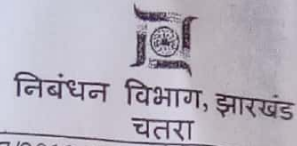 निबंधन विभाग, झारखंड
चतरा